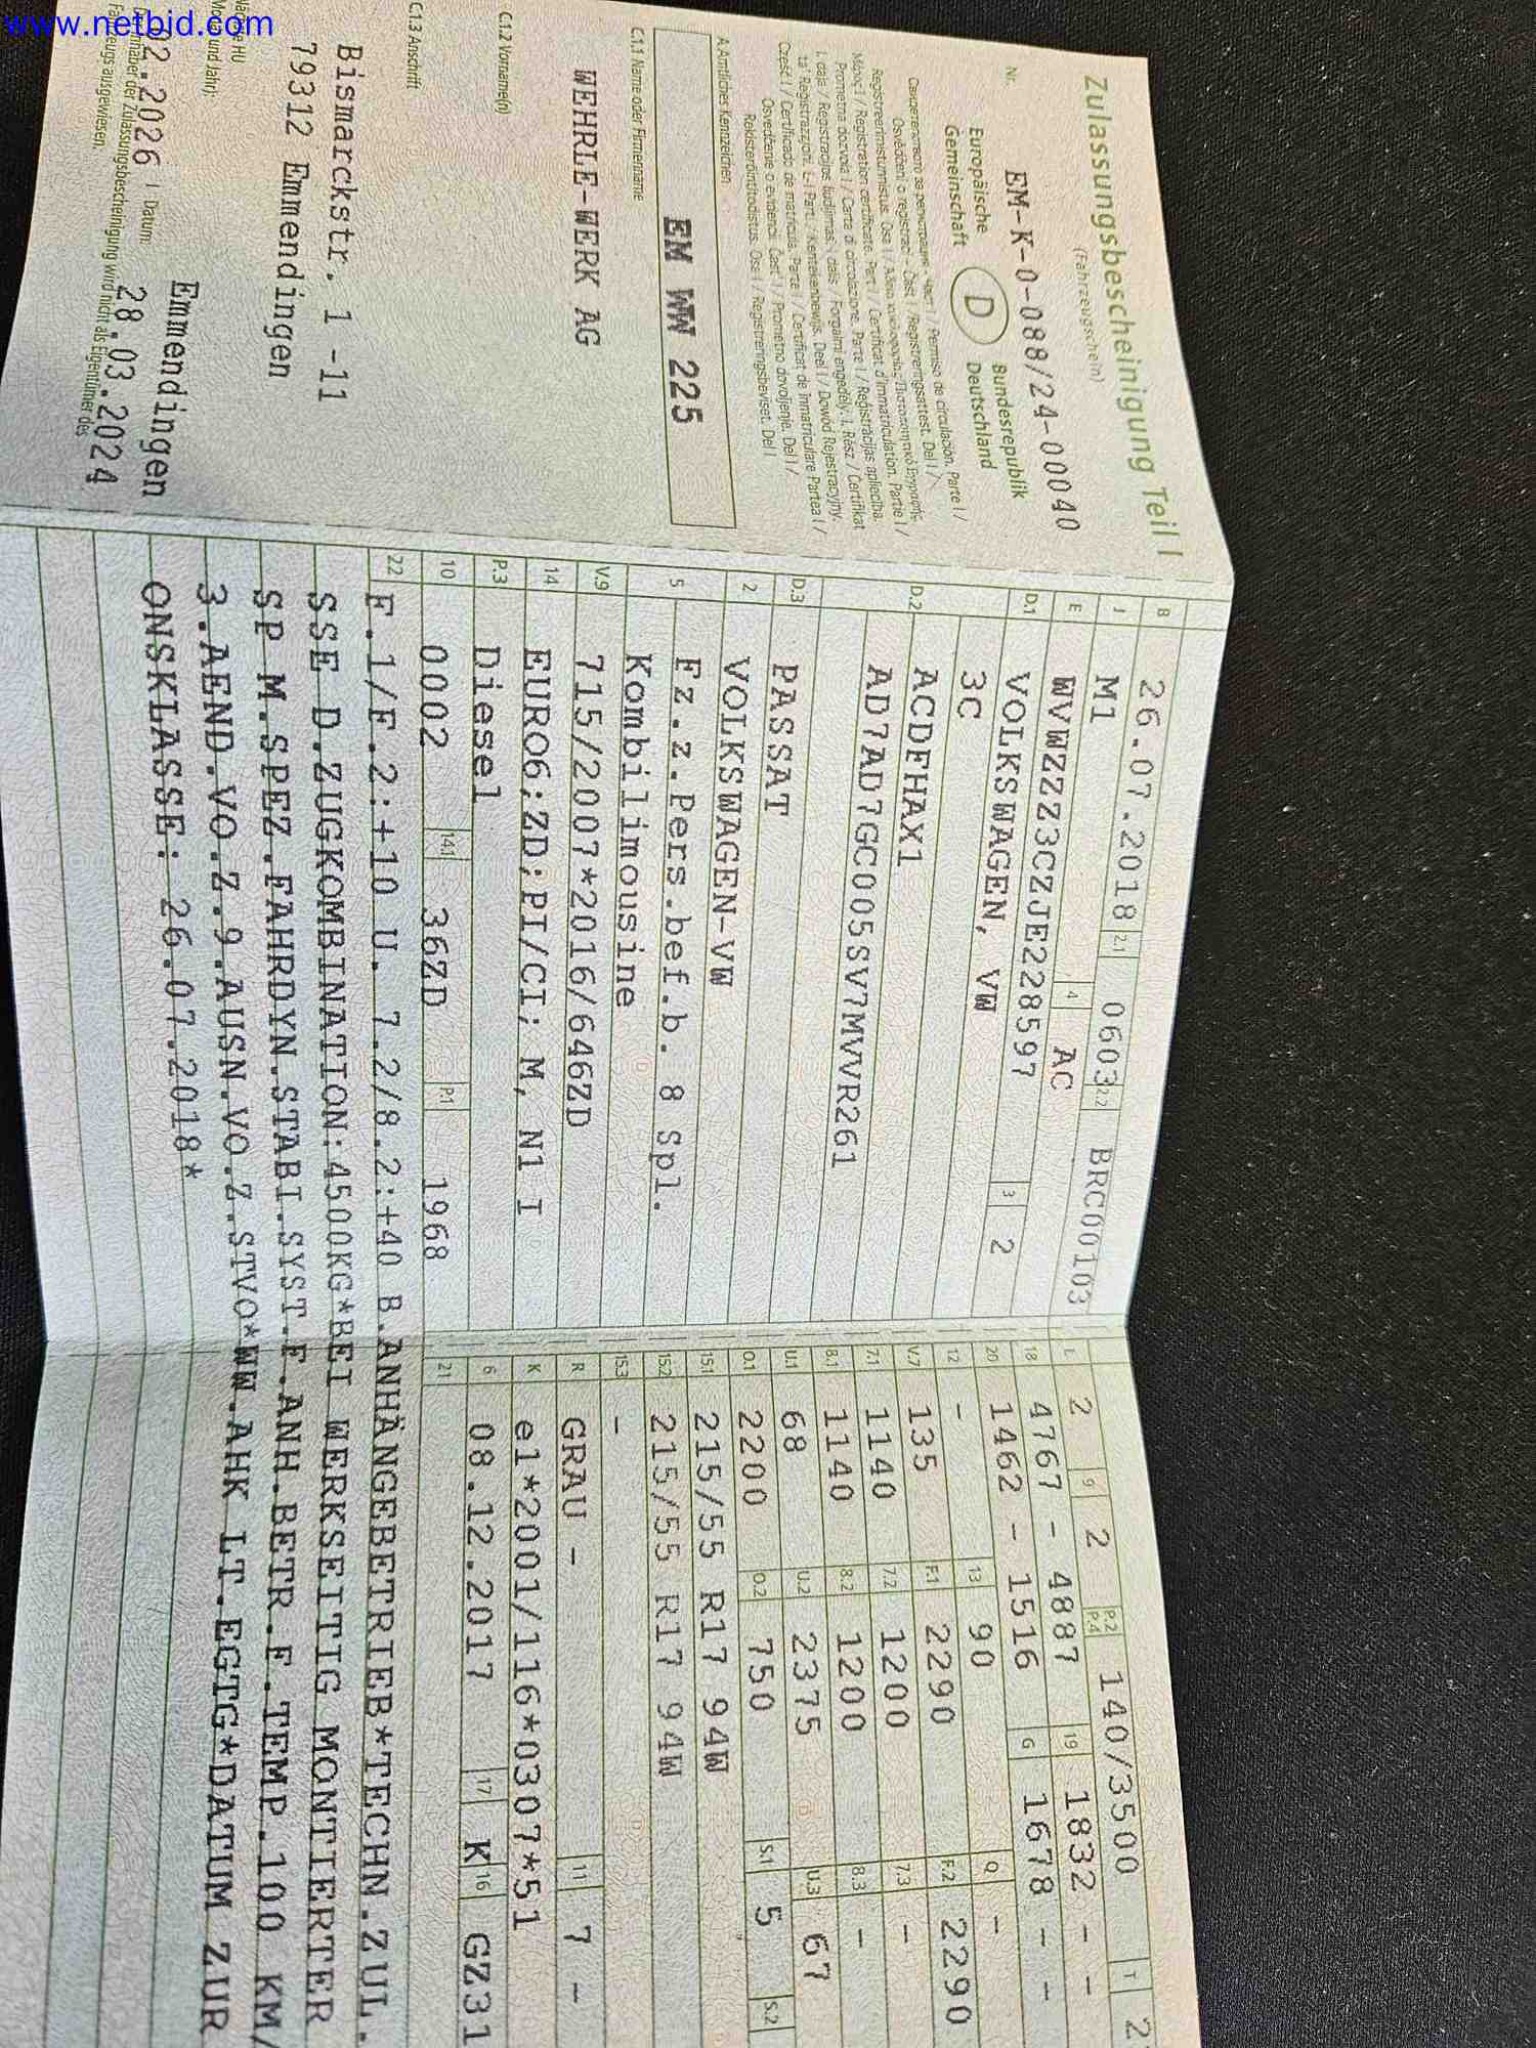 www.netbid.com
Zulassungsbescheinigung Teil I
(Fahrzeugschein)
Nr. EM-K-0-088/24-00040
Europäische
Gemeinschaft
D
Bundesrepublik
Deutschland
Permiso de circulación. Parte I /
Osvědčení o registraci - Část I / Registreringsattest. Del I /
Registreerimistunnistus. Osa I /
/ Registration certificate. Part I / Certificat d'immatriculation. Partie I /
Prometna dozvola I / Carta di circolazione. Parte I / Reģistrācijas apliecība.
I. daļa / Registracijos liudijimas. I dalis / Forgalmi engedély. I. Rész / Ċertifikat
ta' Reġistrazzjoni. L-I Parti / Kentekenbewijs. Deel I / Dowód Rejestracyjny.
Część I / Certificado de matrícula. Parte I / Certificat de înmatriculare Partea I /
Osvedčenie o evidencii. Časť I / Prometno dovoljenje. Del I /
Rekisteröintitodistus. Osa I / Registreringsbeviset. Del I
A Amtliches Kennzeichen
EM WW 225
C.1.1 Name oder Firmenname
WEHRLE-WERK AG
C.1.2 Vorname(n)
C.1.3 Anschrift
Bismarckstr. 1 -11
79312 Emmendingen
HU
Monat und Jahr):
02.2026
Emmendingen
Datum: 28.03.2024
Inhaber der Zulassungsbescheinigung wird nicht als Eigentümer des
Fahrzeugs ausgewiesen.
B 26.07.2018 2.1 0603 2.2 BRC00103
J M1 4 AC
E WVWZZZ3CZJE228597 3 2
D.1 VOLKSWAGEN, VW
3C
D.2 ACDFHAX1
AD7AD7GC005SV7MVVR261
D.3 PASSAT
2 VOLKSWAGEN-VW
5 Fz.z.Pers.bef.b. 8 Spl.
Kombilimousine
V.9 715/2007*2016/646ZD
14 EURO6;ZD;PI/CI; M, N1 I
P.3 Diesel
10 0002 14.1 36ZD P.1 1968
L 2 9 2 P.2 P.4 140/3500 T
18 4767 - 4887 19 1832 - -
20 1462 - 1516 G 1678 - -
12 - 13 90 Q -
V.7 135 F.1 2290 F.2 2290
7.1 1140 7.2 1200 7.3 -
8.1 1140 8.2 1200 8.3 -
U.1 68 U.2 2375 U.3 67
O.1 2200 O.2 750 S.1 5 S.2
15.1 215/55 R17 94W
15.2 215/55 R17 94W
15.3 -
R GRAU - 11 7 -
K e1*2001/116*0307*51
6 08.12.2017 17 K 16 GZ31
21
22 F.1/F.2:+10 U. 7.2/8.2:+40 B.ANHÄNGEBETRIEB*TECHN.ZUL.
SSE D.ZUGKOMBINATION:4500KG*BEI WERKSEITIG MONTIERTER
SP M.SPEZ.FAHRDYN.STABI.SYST.F.ANH.BETR.F.TEMP.100 KM/
3.AEND.VO.Z.9.AUSN.VO.Z.STVO*WW.AHK LT.EGTG*DATUM ZUR
ONSKLASSE: 26.07.2018*